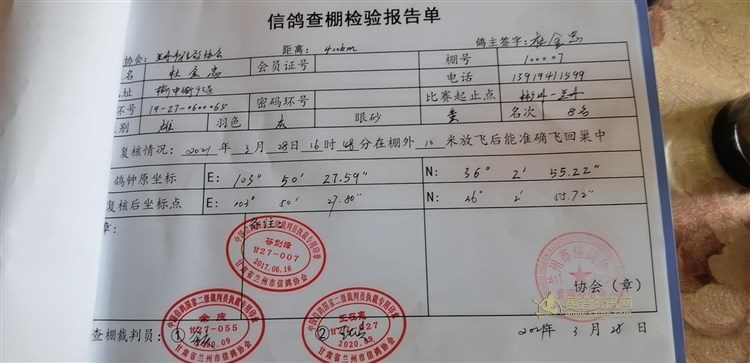 信鸽查棚检验报告单
协会: 距离: 400km 鸽主签字: 杜金忠
名 杜金忠 会员证号 棚号 100007
址 电话 13919411599
环号 19-27-0600065 密码环号 比赛起止点
别 雄 羽色 灰 眼砂 黄 名次 8名
复核情况: 2021 年 3 月 28 日 16 时 48 分在棚外 10 米放飞后能准确飞回巢中
鸽钟原坐标 E: 103° 50′ 27.59″ N: 36° 2′ 55.22″
复核后坐标点 E: 103° 50′ 27.80″ N: 36° 2′ 55.72″
章: 备注:
中国信鸽国家二级裁判员执裁专用印章
谷剑峰
甘27-007
2017.06.16
甘肃省兰州市信鸽协会
兰州市信鸽协会
协会(章)
中国信鸽国家二级裁判员执裁专用印章
余庆
甘27-055
2020.09
甘肃省兰州市信鸽协会
中国信鸽国家二级裁判员执裁专用印章
2020.09
甘肃省兰州市信鸽协会
查棚裁判员: ① ② 2021年 3 月 28 日